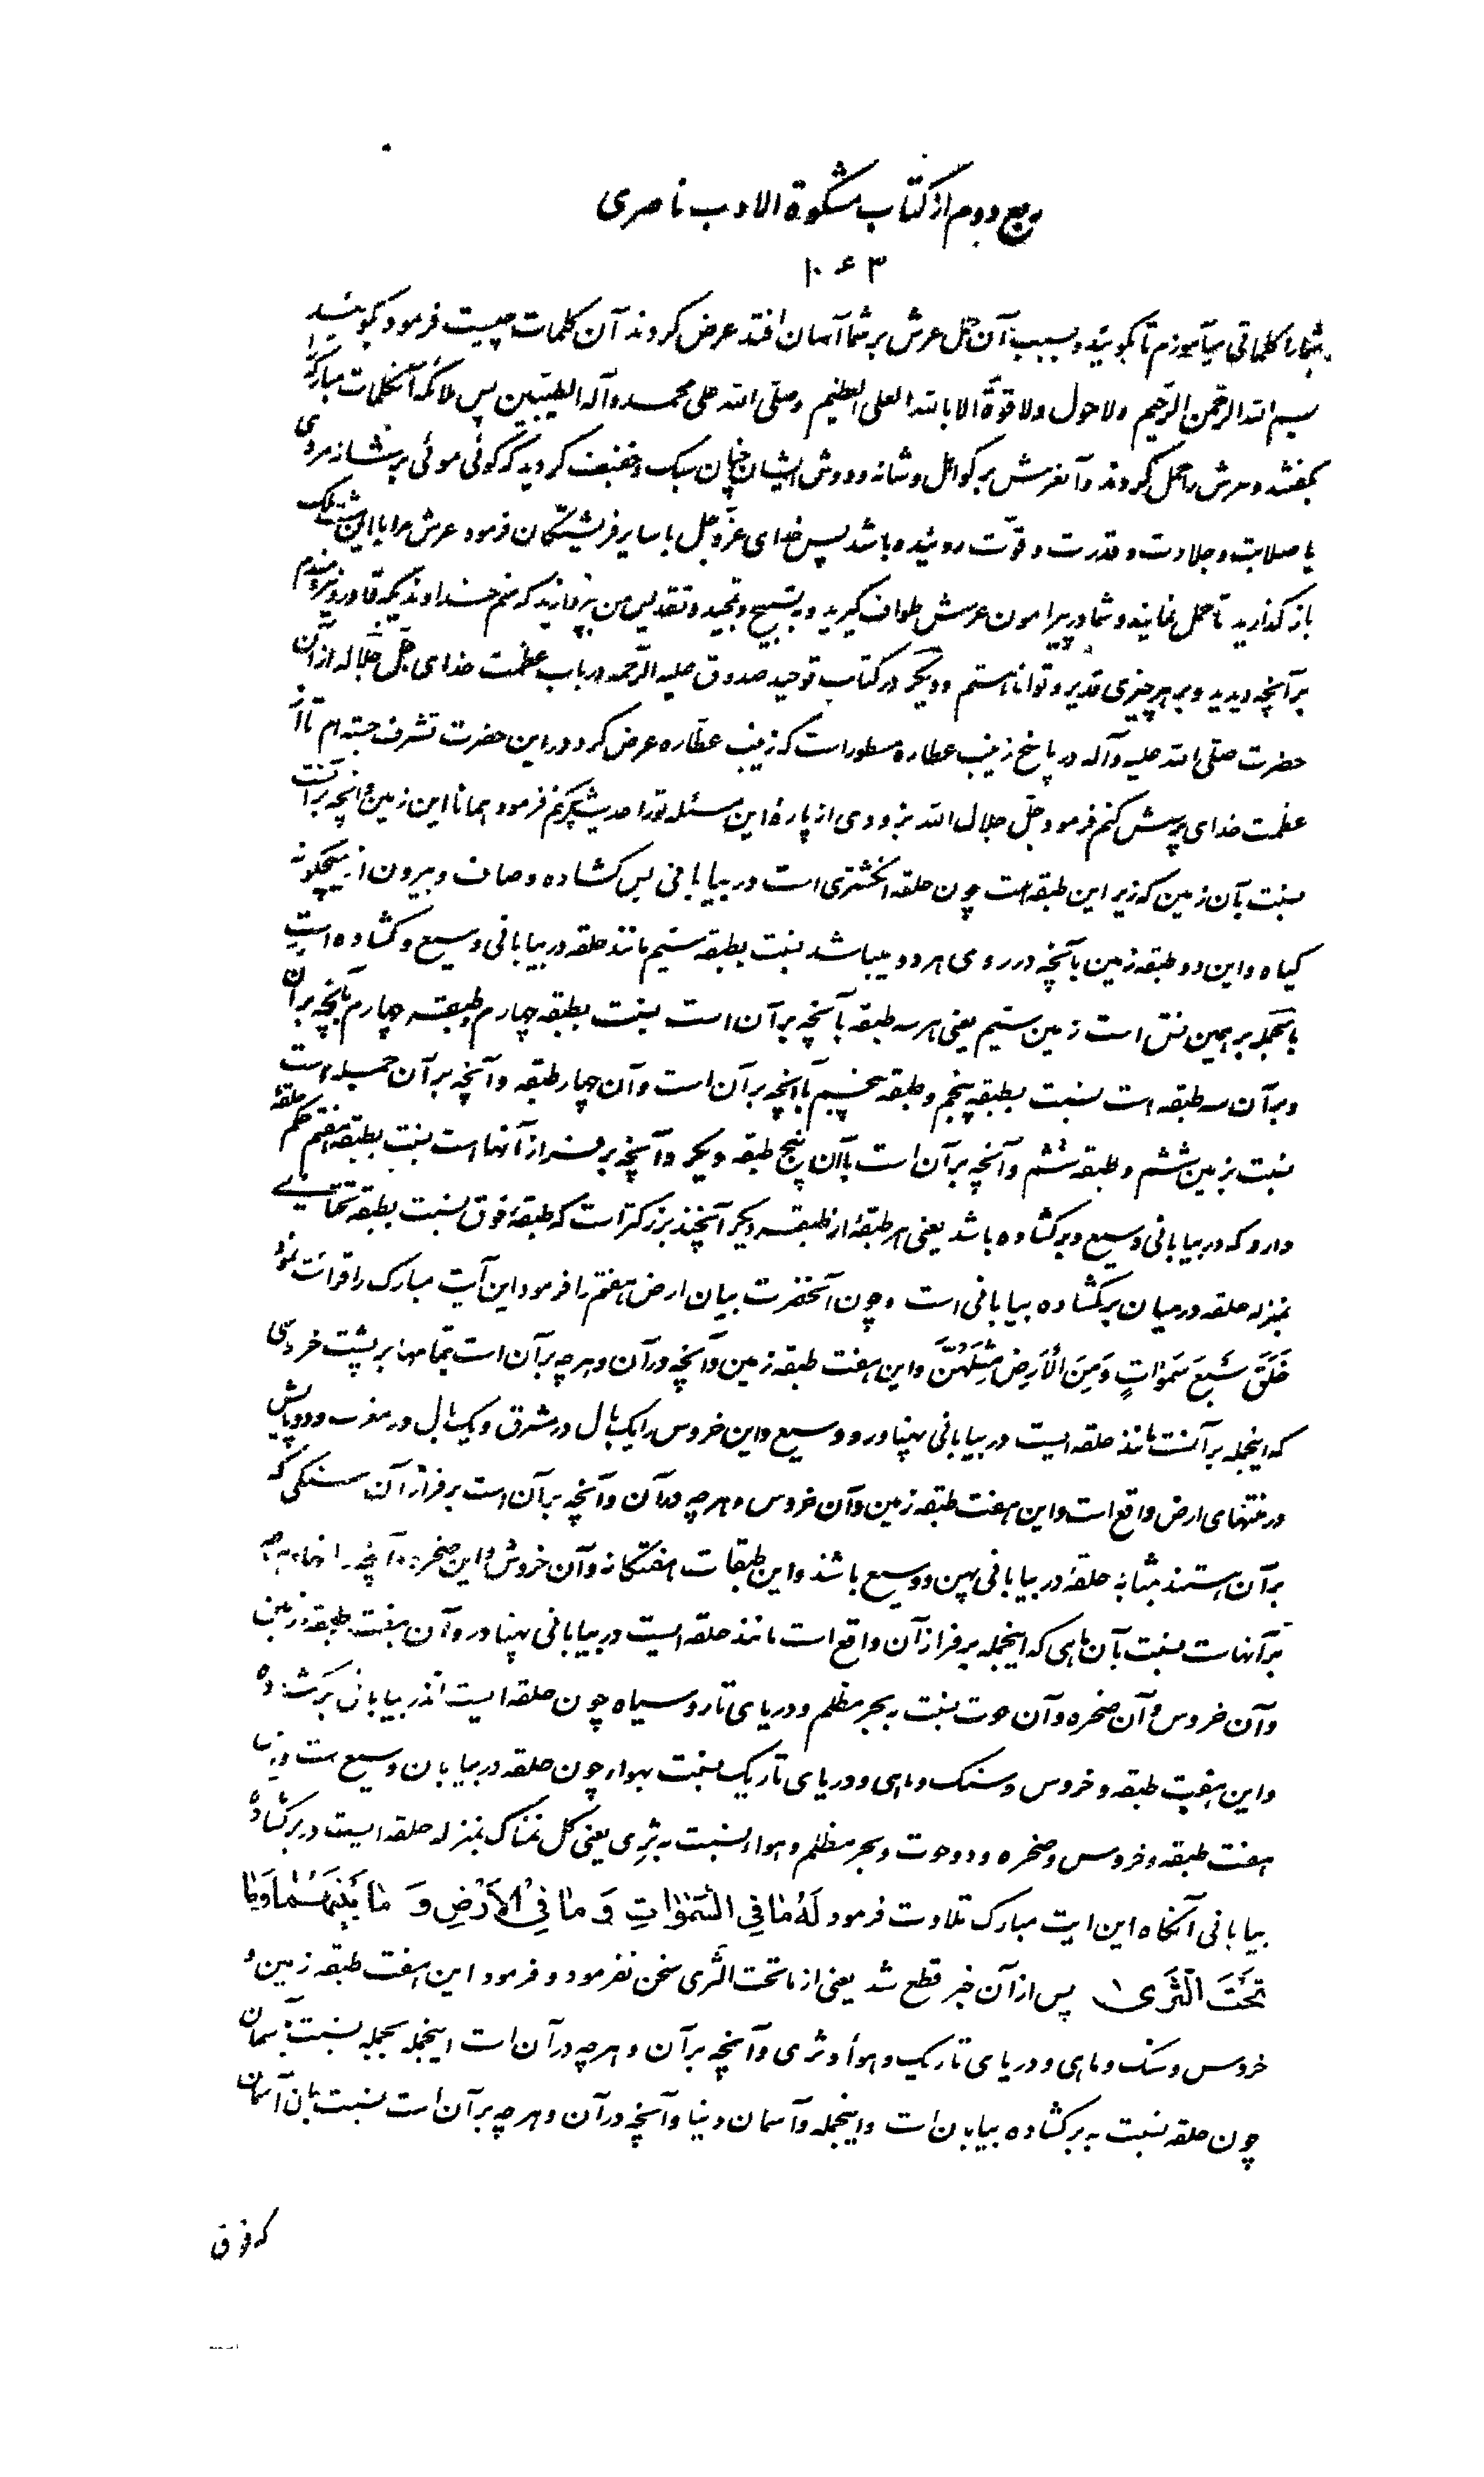 ربع دوم از کتاب مشکوة الادب ناصری
۱۰۶۳
شما را کلماتی میآموزم تا بگوئید و بسبب آن حمل عرش بر شما آسان افتد عرض کردند آن کلمات چیست فرمود بگوئید
بسم الله الرحمن الرحیم ولا حول ولا قوة الا بالله العلی العظیم وصلی الله علی محمد وآله الطیبین پس ملائکه آنکلمات مبارکه
بگفتند و عرش را حمل کردند و آنعرش بر کواهل و شانه و دوش ایشان چنان سبک و خفیف گردید که گوئی موئی بر شانه مردی
با صلابت و جلادت و قدرت و قوت روئیده باشد پس خدای عز و جل با سایر فرشتگان فرمود عرش مرا با این هشت ملک
باز گذارید تا حمل نمایند و شما در پیرامون عرش طواف گیرید و به تسبیح و تمجید و تقدیس من بپردازید که منم خداوندیکه قادر و نیرومندم
بر آنچه دیدید و بر هر چیزی قدیر و توانا هستم و دیگر در کتاب توحید صدوق علیه الرحمه در باب عظمت خدای جل جلاله از آن
حضرت صلی الله علیه وآله در پاسخ زینب عطاره مسطور است که زینب عطاره عرض کرد در این حضرت تشرف جسته ام تا از
عظمت خدای پرسش کنم فرمود جل جلال الله بزودی از پاره این مسئله تو را حدیث کنم فرمود همانا این زمین و آنچه بر آنست
بنسبت بآن زمین که زیر این طبقه است چون حلقه انگشتری است در بیابانی بس گشاده و صاف و بیرون از هیچگونه
گیاه و این دو طبقه زمین با آنچه در روی هر دو میباشد نسبت بطبقه سیم مانند حلقه در بیابانی وسیع و گشاده است
بالجمله بر همین نسق است زمین سیم یعنی هر سه طبقه با آنچه بر آن است بنسبت بطبقه چهارم و طبقه چهارم با آنچه بر آن
و بر آن سه طبقه است نسبت بطبقه پنجم و طبقه پنجم با آنچه بر آن است و آن چهار طبقه و آنچه بر آن جمیله است
نسبت بزمین ششم و طبقه ششم و آنچه بر آن است با آن پنج طبقه دیگر و آنچه بر فراز آنها است نسبت بطبقه هفتم حکم حلقه
دارد که در بیابانی وسیع و بر گشاده باشد یعنی هر طبقه از طبقه دیگر آنچند بزرگتر است که طبقه فوق نسبت بطبقه تحتانی
بمنزله حلقه در میان بر گشاده بیابانی است و چون آنحضرت بیان ارض هفتم را فرمود این آیت مبارک را قرائت نمود
خَلَقَ سَبْعَ سَمٰوٰاتٍ وَمِنَ الْأَرْضِ مِثْلَهُنَّ و این هفت طبقه زمین و آنچه در آن و هر چه بر آن است بتمامها بر پشت خروسی
که اینجمله بر آنست مانند حلقه ایست در بیابانی پهناور و وسیع و این خروس را یک بال در مشرق و یک بال در مغرب و دو پایش
در منتهای ارض واقع است و این هفت طبقه زمین و آن خروس و هر چه در آن و آنچه بر آن است بر فراز آن سنگی که
بر آن هستند بمثابه حلقه در بیابانی پهن و وسیع باشد و این طبقات هفتگانه و آن خروش و این صخره و آنچه
بر آنهاست بنسبت بآن ماهی که اینجمله بر فراز آن واقع است مانند حلقه ایست در بیابانی پهناور و آن هفت طبقه زمین
و آن خروس و آن صخره و آن حوت نسبت به بحر مظلم و دریای تار و سیاه چون حلقه ایست اندر بیابانی بر گشاده
و این هفت طبقه و خروس و سنگ و ماهی و دریای تاریک بنسبت بهوا چون حلقه در بیابان وسیع است
هفت طبقه و خروس و صخره و حوت و بحر مظلم و هواء بنسبت به ثری یعنی گل نمناک بمنزله حلقه ایست در بر گشاده
بیابانی آنگاه این ایت مبارک تلاوت فرمود لَهُ مٰا فِی السَّمٰوٰاتِ وَ مٰا فِی الْأَرْضِ وَ مٰا بَیْنَهُمٰا وَمٰا
تَحْتَ الثَّریٰ پس از آن خبر قطع شد یعنی از ما تحت الثری سخن نفرمود و فرمود این هفت طبقه زمین و
خروس و سنگ و ماهی و دریای تاریک و هوا و ثری و آنچه بر آن و هر چه در آن است اینجمله بجمله بنسبت بآسمان
چون حلقه نسبت به بر گشاده بیابان است و اینجمله و آسمان دنیا و آنچه در آن و هر چه بر آن است بنسبت بآن آسمان
که فوق